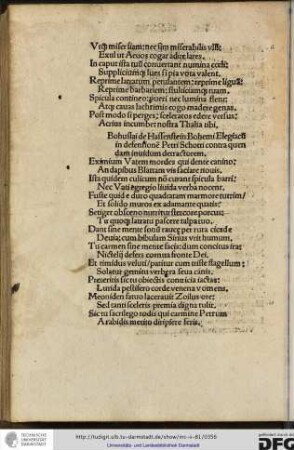 Vtq; miser siam: nec sim miserabilis vlli:
Exul ut Aeuos cogar adire lares.
In caput ista tuū conuertant numina cœli:
Suppliciumq; lues si pia vota valent.
Reprime latratum petulantem: reprime liguā:
Reprime barbariem: stulticiamq; tuam.
Spicula contineo: pueri nec lumina fletu:
Atq; cauas lachrimis cogo madere genas.
Post modo si perges: sceleratos edere versus:
Acrius incumbet nostra Thalia tibi,
Bohuslai de Hassenstein Bohemi Elegiacū
in defensionē Petri Schotti contra quen
dam inuidum detractorem.
Eximium Vatem mordes qui dente canino:
An dapibus Blattam vis saciare nouis.
Ista quidem culicum nō curant spicula barri:
Nec Vati egregio liuida verba nocent.
Fuste quid e duro quadratam marmore turrim/
Et solido muros ex adamante quatis:
Setiger obsceno nutritur stercore porcus:
Tu quoq; latratu pascere
Dant sine mente sonū raucę per rura cicadę
Deuia: cum bibulam Sirius vrit humum,
Tu carmen sine mente facis: dum concinis
defers cornua fronte Dei.
Et timidus veluti/ patitur cum uiste flagellum:
Solatur gemitu verbera seua canis.
Preteritis sic tu obiectis conuicia iactas:
Lurida pestifero corde venena vomens,
Meoniden fatuo lacerauit Zoilus ore:
Sed tanti sceleris premia digna tulit.
Sic tu sacrilego rodis qui carmine Petrum
Arabidis merito diripiere feris.
TECHNISCHE UNIVERSITÄT DARMSTADT
http://tudigit.ulb.tu-darmstadt.de/show/inc-ii-81/0356
Universitäts- und Landesbibliothek Darmstadt
gefördert durch die
DFG